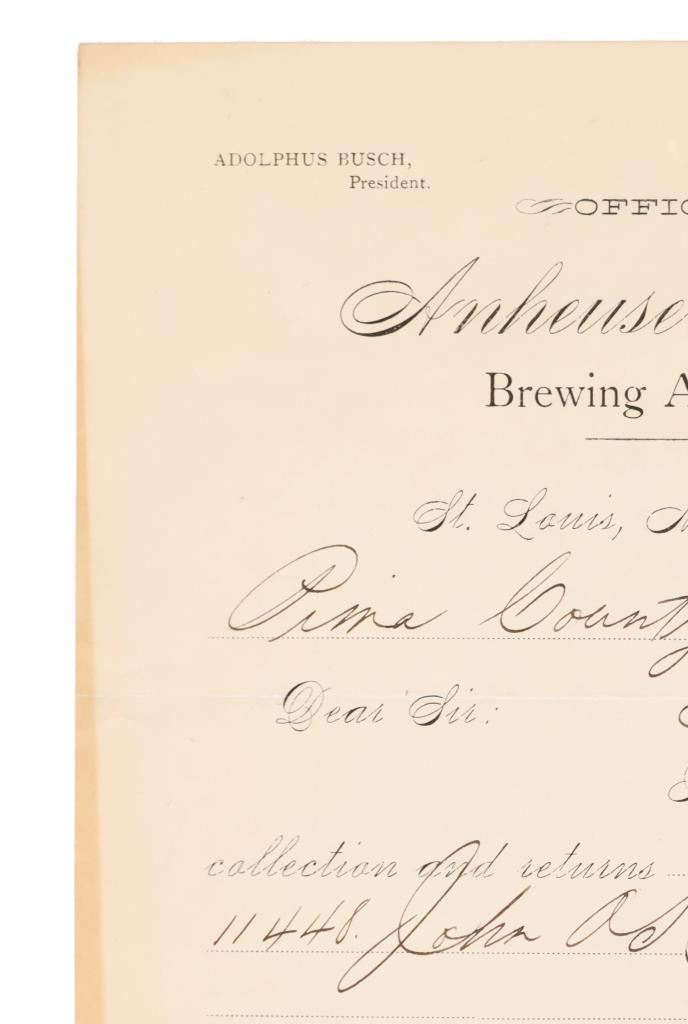 ADOLPHUS BUSCH,
President.
OFFIC
Anheuse
Brewing A
St. Louis, M
Pima County
Dear Sir:
collection and returns
11448. John